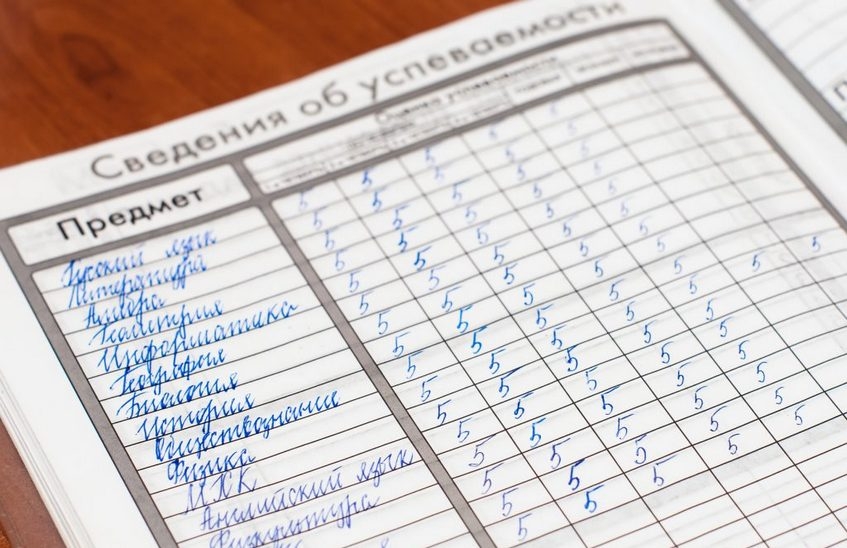 Сведения об успеваемости
Предмет
Русский язык 5 5 5 5 5
Литература 5 5 5 5 5
Алгебра 5 5 5 5 5
Геометрия 5 5 5 5 5
Информатика 5 5 5 5 5
География 5 5 5 5 5
Биология 5 5 5 5 5
История 5 5 5 5 5
Обществознание 5 5 5 5 5
Физика 5 5 5 5 5
МХК 5 5 5 5 5
Английский язык 5 5 5 5 5
Физкультура 5 5 5 5 5